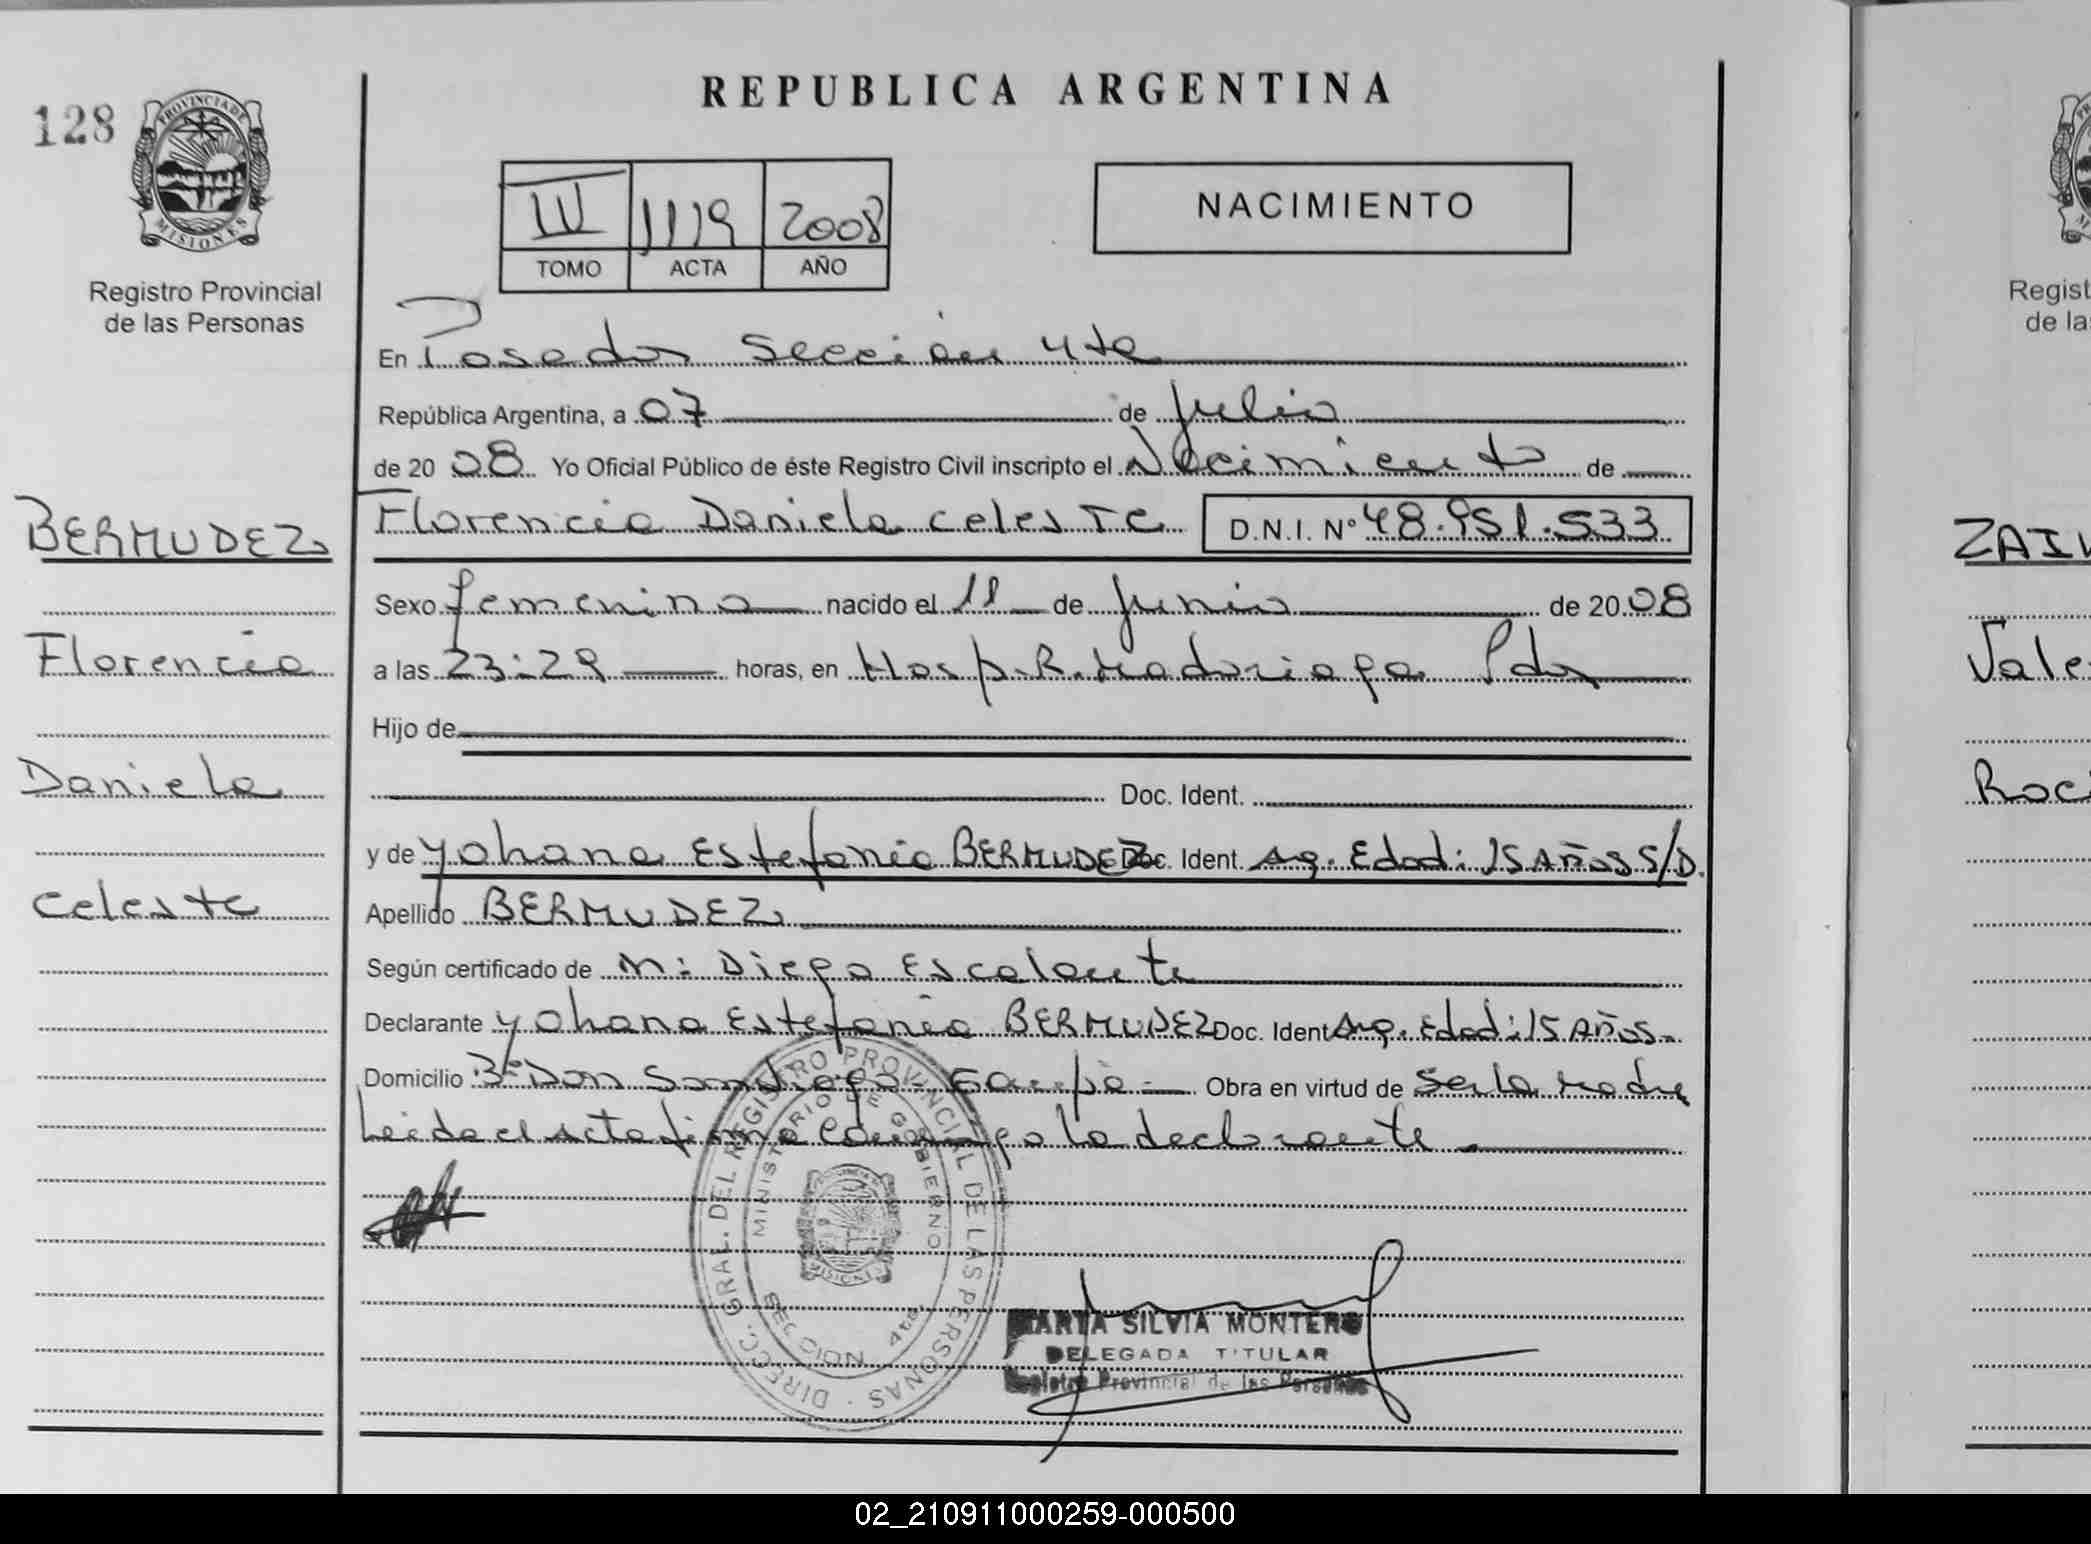 128
PROVINCIA DE
MISIONES
Registro Provincial
de las Personas
BERMUDEZ
Florencia
Daniela
Celeste
REPUBLICA ARGENTINA
III 1119 2008
TOMO ACTA AÑO
NACIMIENTO
En Posadas Sección 4ta
República Argentina, a 07 de Julio
de 20 08 Yo Oficial Público de éste Registro Civil inscripto el Nacimiento de
Florencia Daniela Celeste D.N.I. Nº 48.951.533
Sexo femenino nacido el 11 de Junio de 20 08
a las 23:29 horas, en Hosp. R. Madariaga Pdas
Hijo de
Doc. Ident.
y de Yohana Estefania BERMUDEZ Doc. Ident. Arg. Edad: 15 Años S/D.
Apellido BERMUDEZ
Según certificado de M: Diego Escalante
Declarante Yohana Estefania BERMUDEZ Doc. Ident Arg. Edad: 15 Años-
Domicilio Bº Don Santiago - Garupá - Obra en virtud de Ser la Madre
Leida el acta firma conmigo la declarante
DIRECC. GRAL. DEL REGISTRO PROVINCIAL DE LAS PERSONAS
MINISTERIO DE GOBIERNO
MISIONES
SECCION 4ta
MARTA SILVIA MONTERO
DELEGADA TITULAR
Registro Provincial de las Personas
Regist
de la
ZAI
Vale
Roci
02_210911000259-000500